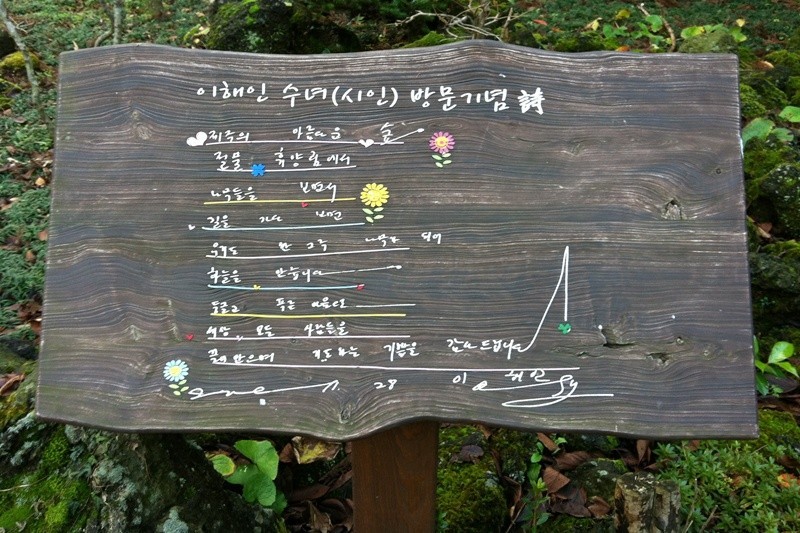 이해인 수녀(시인) 방문기념 詩
제주의 아름다운 숲
절물 휴양림에서
나무들을 보면서
길을 가다 보면
우리도 한 그루 나무가 되어
하늘을 만납니다
둥글고 푸른 마음으로
세상 모든 사람들을
끌어 안으며 기도하는 기쁨을 감사드립니다
28 이 해인